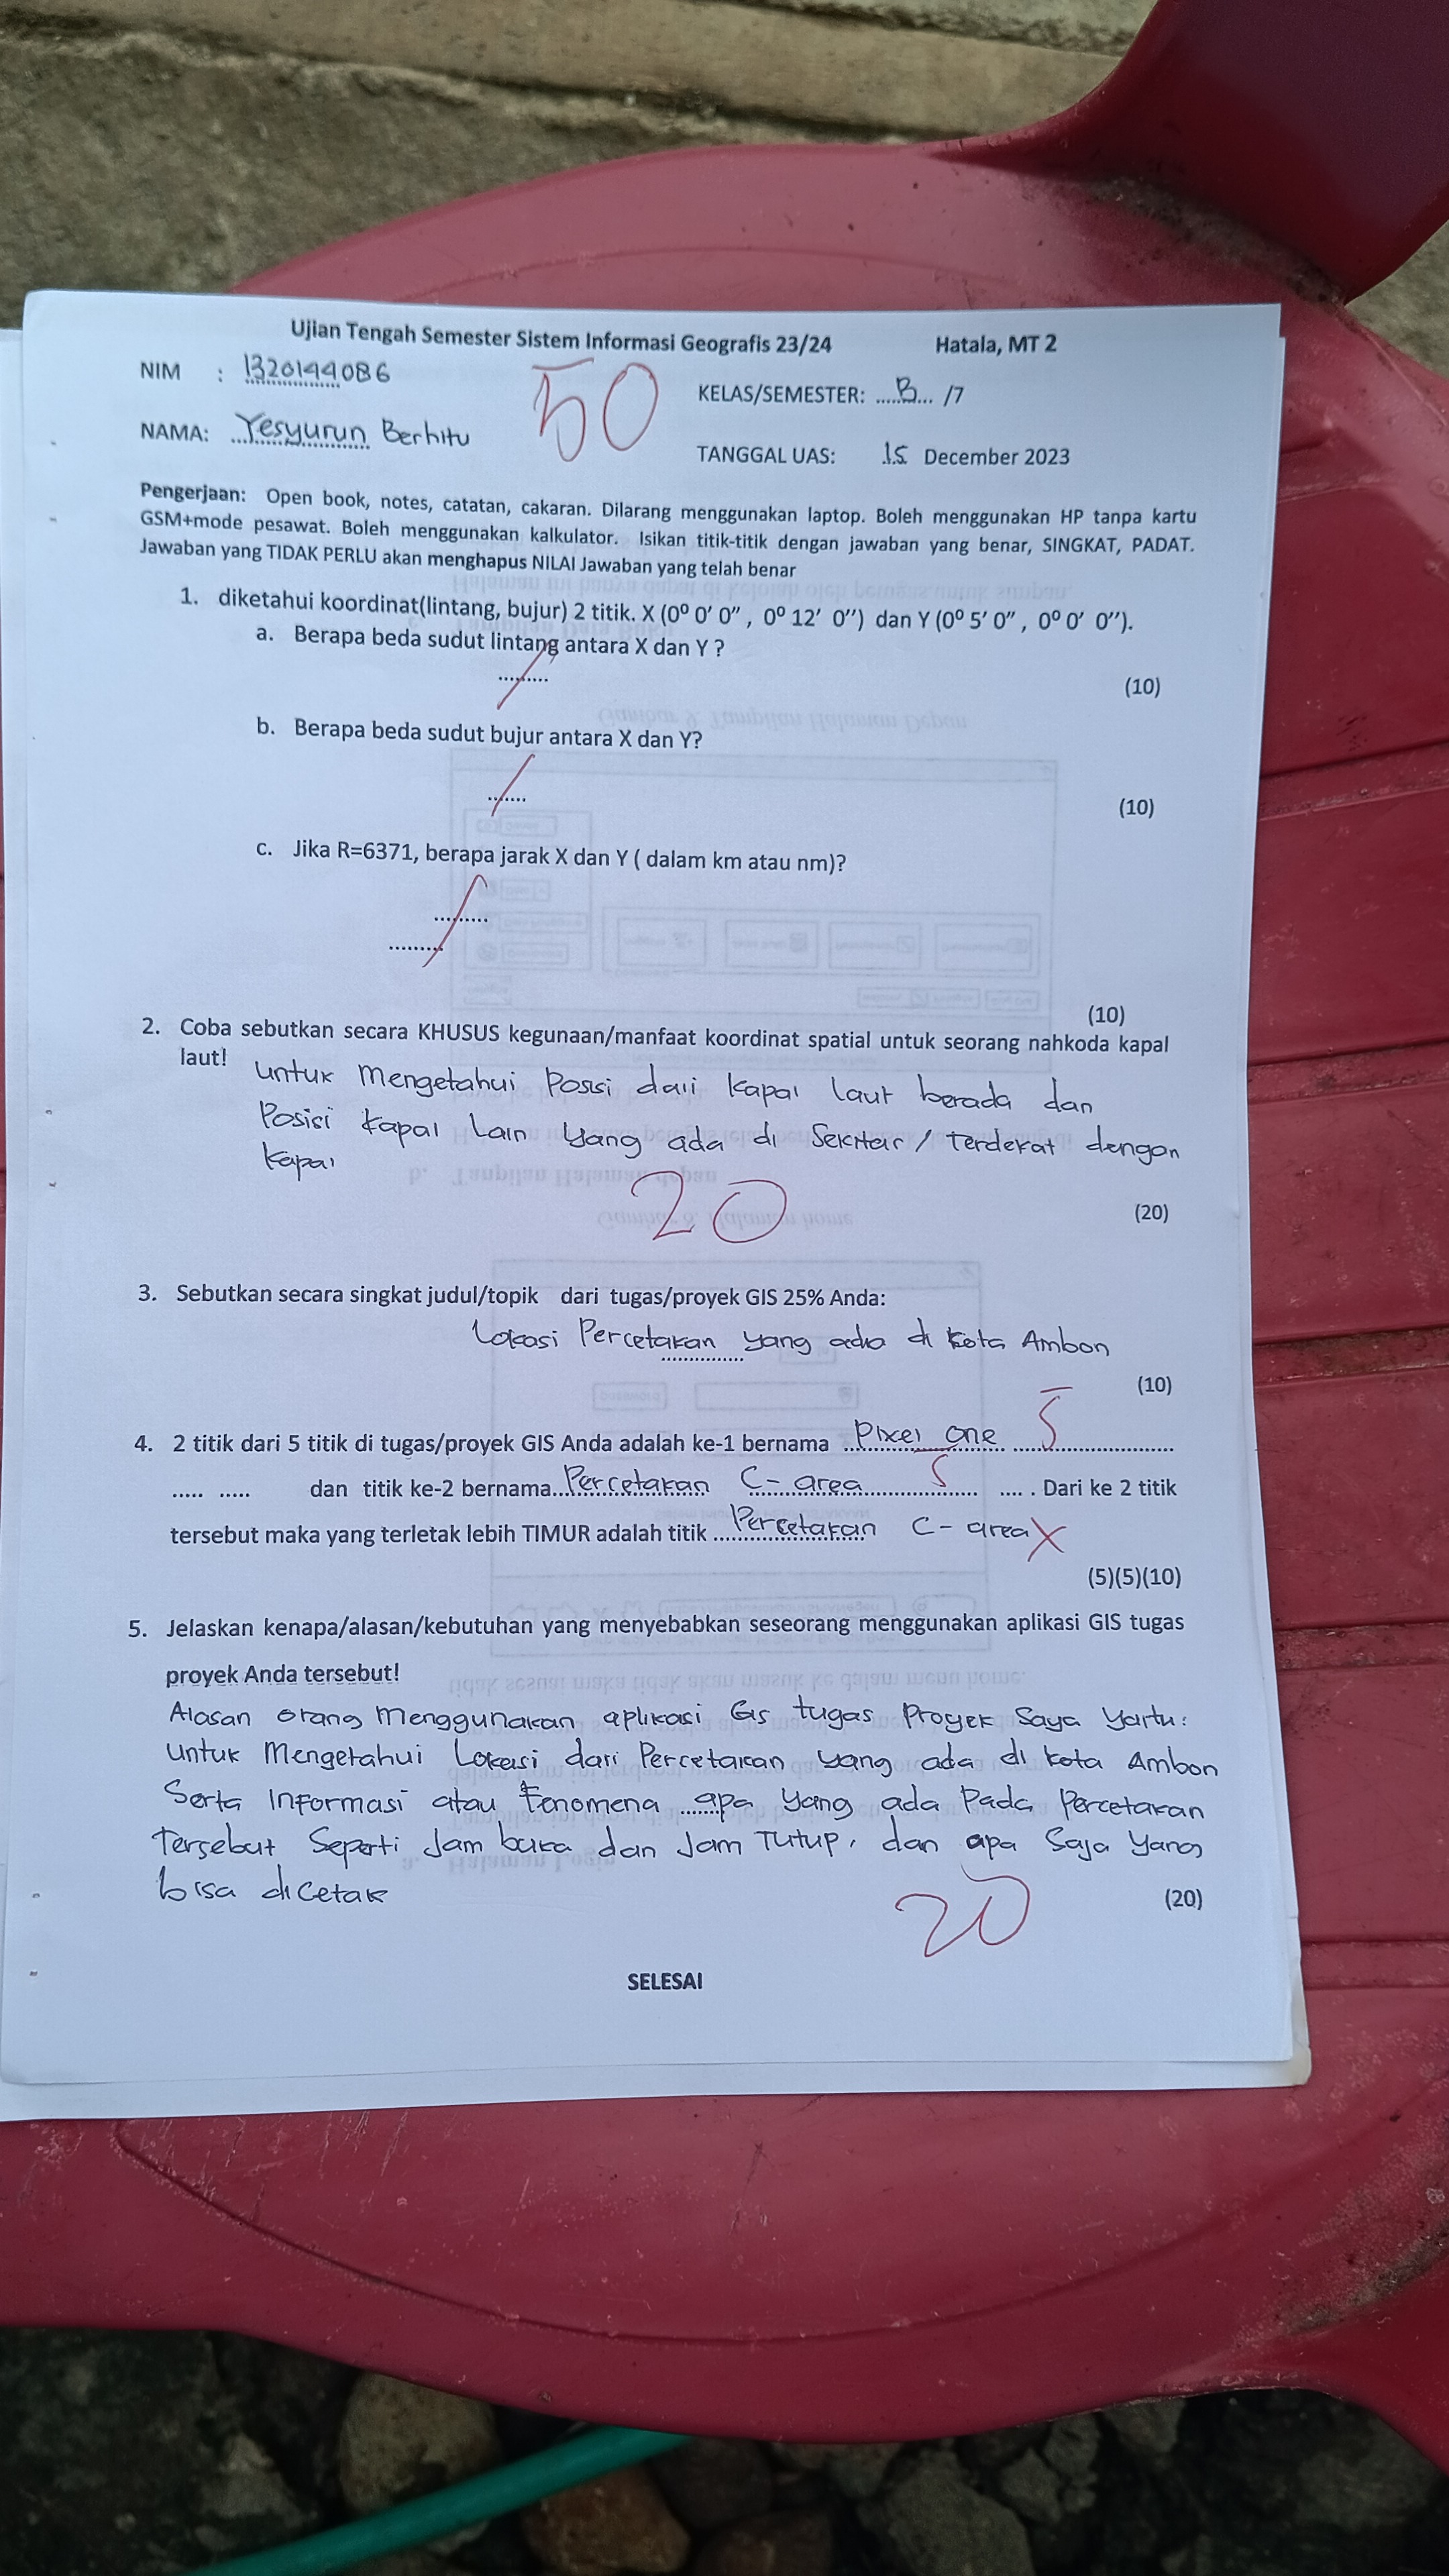 Ujian Tengah Semester Sistem Informasi Geografis 23/24 Hatala, MT 2
NIM : 1320144086
50
KELAS/SEMESTER: .....B... /7
NAMA: Yesyurun Berhitu
TANGGAL UAS: 15 December 2023
Pengerjaan: Open book, notes, catatan, cakaran. Dilarang menggunakan laptop. Boleh menggunakan HP tanpa kartu
GSM+mode pesawat. Boleh menggunakan kalkulator. Isikan titik-titik dengan jawaban yang benar, SINGKAT, PADAT.
Jawaban yang TIDAK PERLU akan menghapus NILAI Jawaban yang telah benar
1. diketahui koordinat(lintang, bujur) 2 titik. X (0⁰ 0′ 0″ , 0⁰ 12′ 0′′) dan Y (0⁰ 5′ 0″ , 0⁰ 0′ 0′′).
a. Berapa beda sudut lintang antara X dan Y ?
.........
(10)
b. Berapa beda sudut bujur antara X dan Y?
.......
(10)
c. Jika R=6371, berapa jarak X dan Y ( dalam km atau nm)?
.........
.........
(10)
2. Coba sebutkan secara KHUSUS kegunaan/manfaat koordinat spatial untuk seorang nahkoda kapal
laut!
untuk Mengetahui Posisi dari kapal laut berada dan
Posisi kapal lain yang ada di Sekitar / terdekat dengan
kapal
20
(20)
3. Sebutkan secara singkat judul/topik dari tugas/proyek GIS 25% Anda:
Lokasi Percetakan yang ada di kota Ambon
(10)
4. 2 titik dari 5 titik di tugas/proyek GIS Anda adalah ke-1 bernama Pixel one 5
..... ..... dan titik ke-2 bernama Percetakan C-area 5 .... . Dari ke 2 titik
tersebut maka yang terletak lebih TIMUR adalah titik Percetakan C-area X
(5)(5)(10)
5. Jelaskan kenapa/alasan/kebutuhan yang menyebabkan seseorang menggunakan aplikasi GIS tugas
proyek Anda tersebut!
Alasan orang Menggunakan aplikasi Gis tugas Proyek Saya yaitu:
untuk Mengetahui Lokasi dari Percetakan yang ada di kota Ambon
Serta Informasi atau Fenomena apa yang ada Pada Percetakan
tersebut Seperti Jam buka dan Jam Tutup, dan apa Saja yang
bisa dicetak
20
(20)
SELESAI